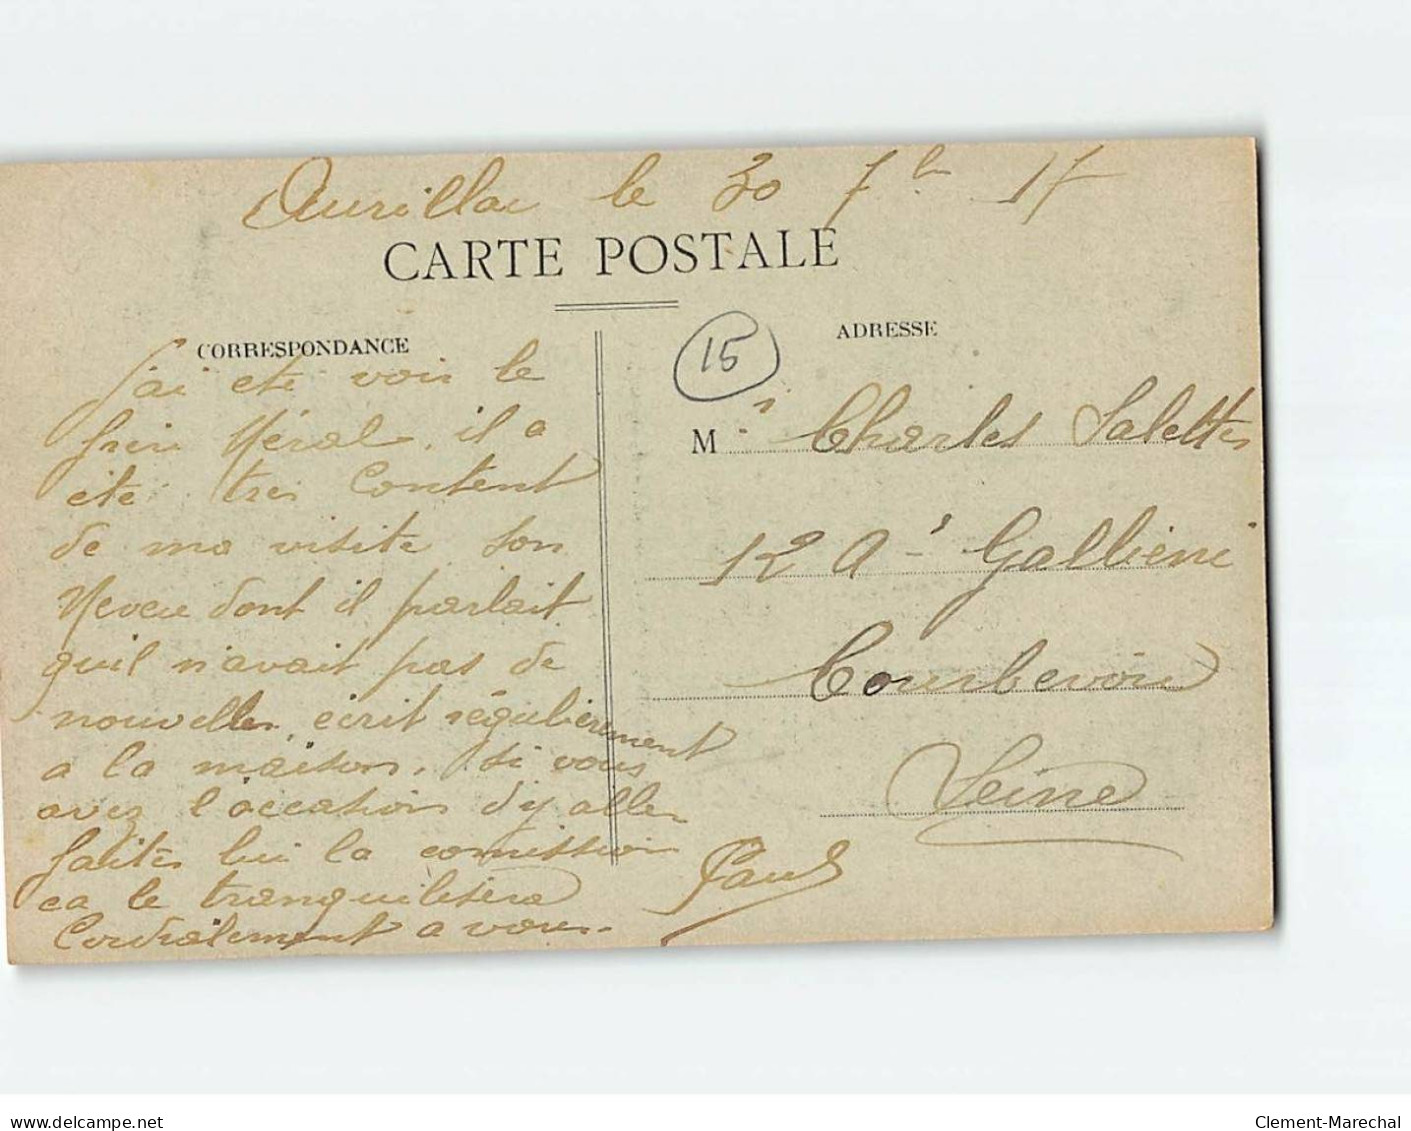 Aurillac le 30 7bre 17
CARTE POSTALE
CORRESPONDANCE
ADRESSE
15
J'ai été voir le
frère Méral, il a
été très content
de ma visite son
Neveu dont il parlait
quil n'avait pas de
nouvelles, écrit régulièrement
a la maison. Si vous
avez l'occasion d'y aller
faites lui la comission
ca le tranquilisera
Cordialement a vous.
Paul
M r Charles Salettes
12 Av Gallieni
Courbevoie
Seine
www.delcampe.net
Clement-Marechal